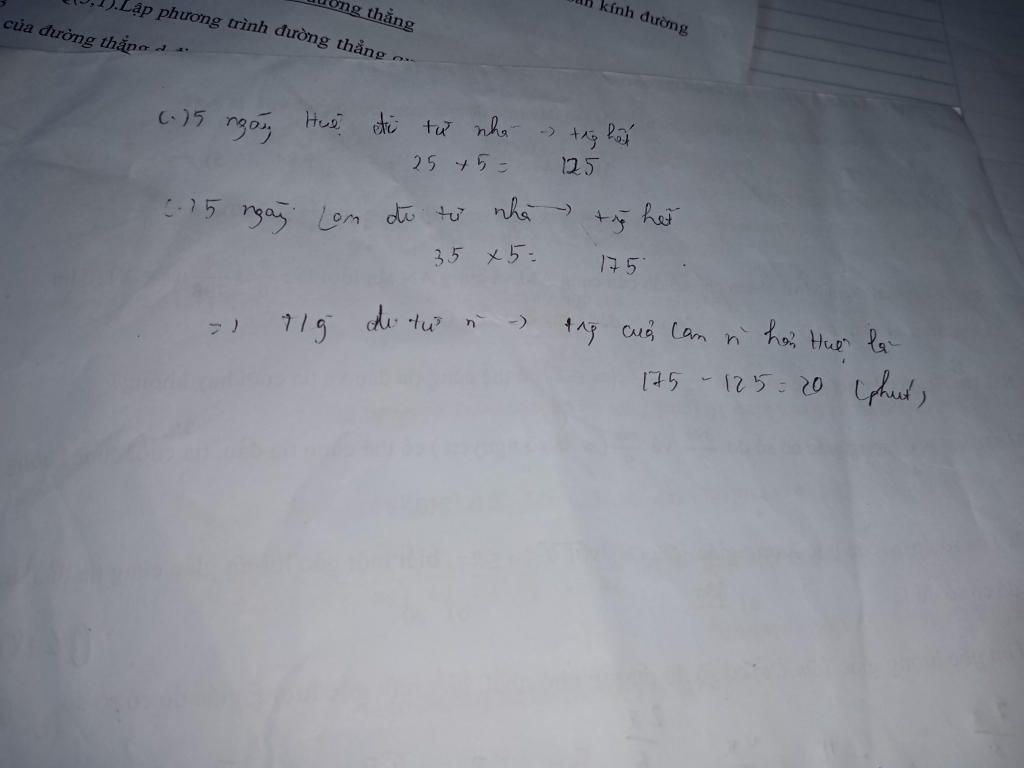 ường thẳng
(3;1).Lập phương trình đường thẳng
của đường thẳng d
án kính đường
(.) 5 ngày Huệ đi từ nhà → trg hết
25 × 5 = 125
(.) 5 ngày Lan đi từ nhà → trg hết
35 × 5 = 175
=) T/g đi từ n → trg của Lan n` hơn Huệ là
175 - 125 = 20 (phút)